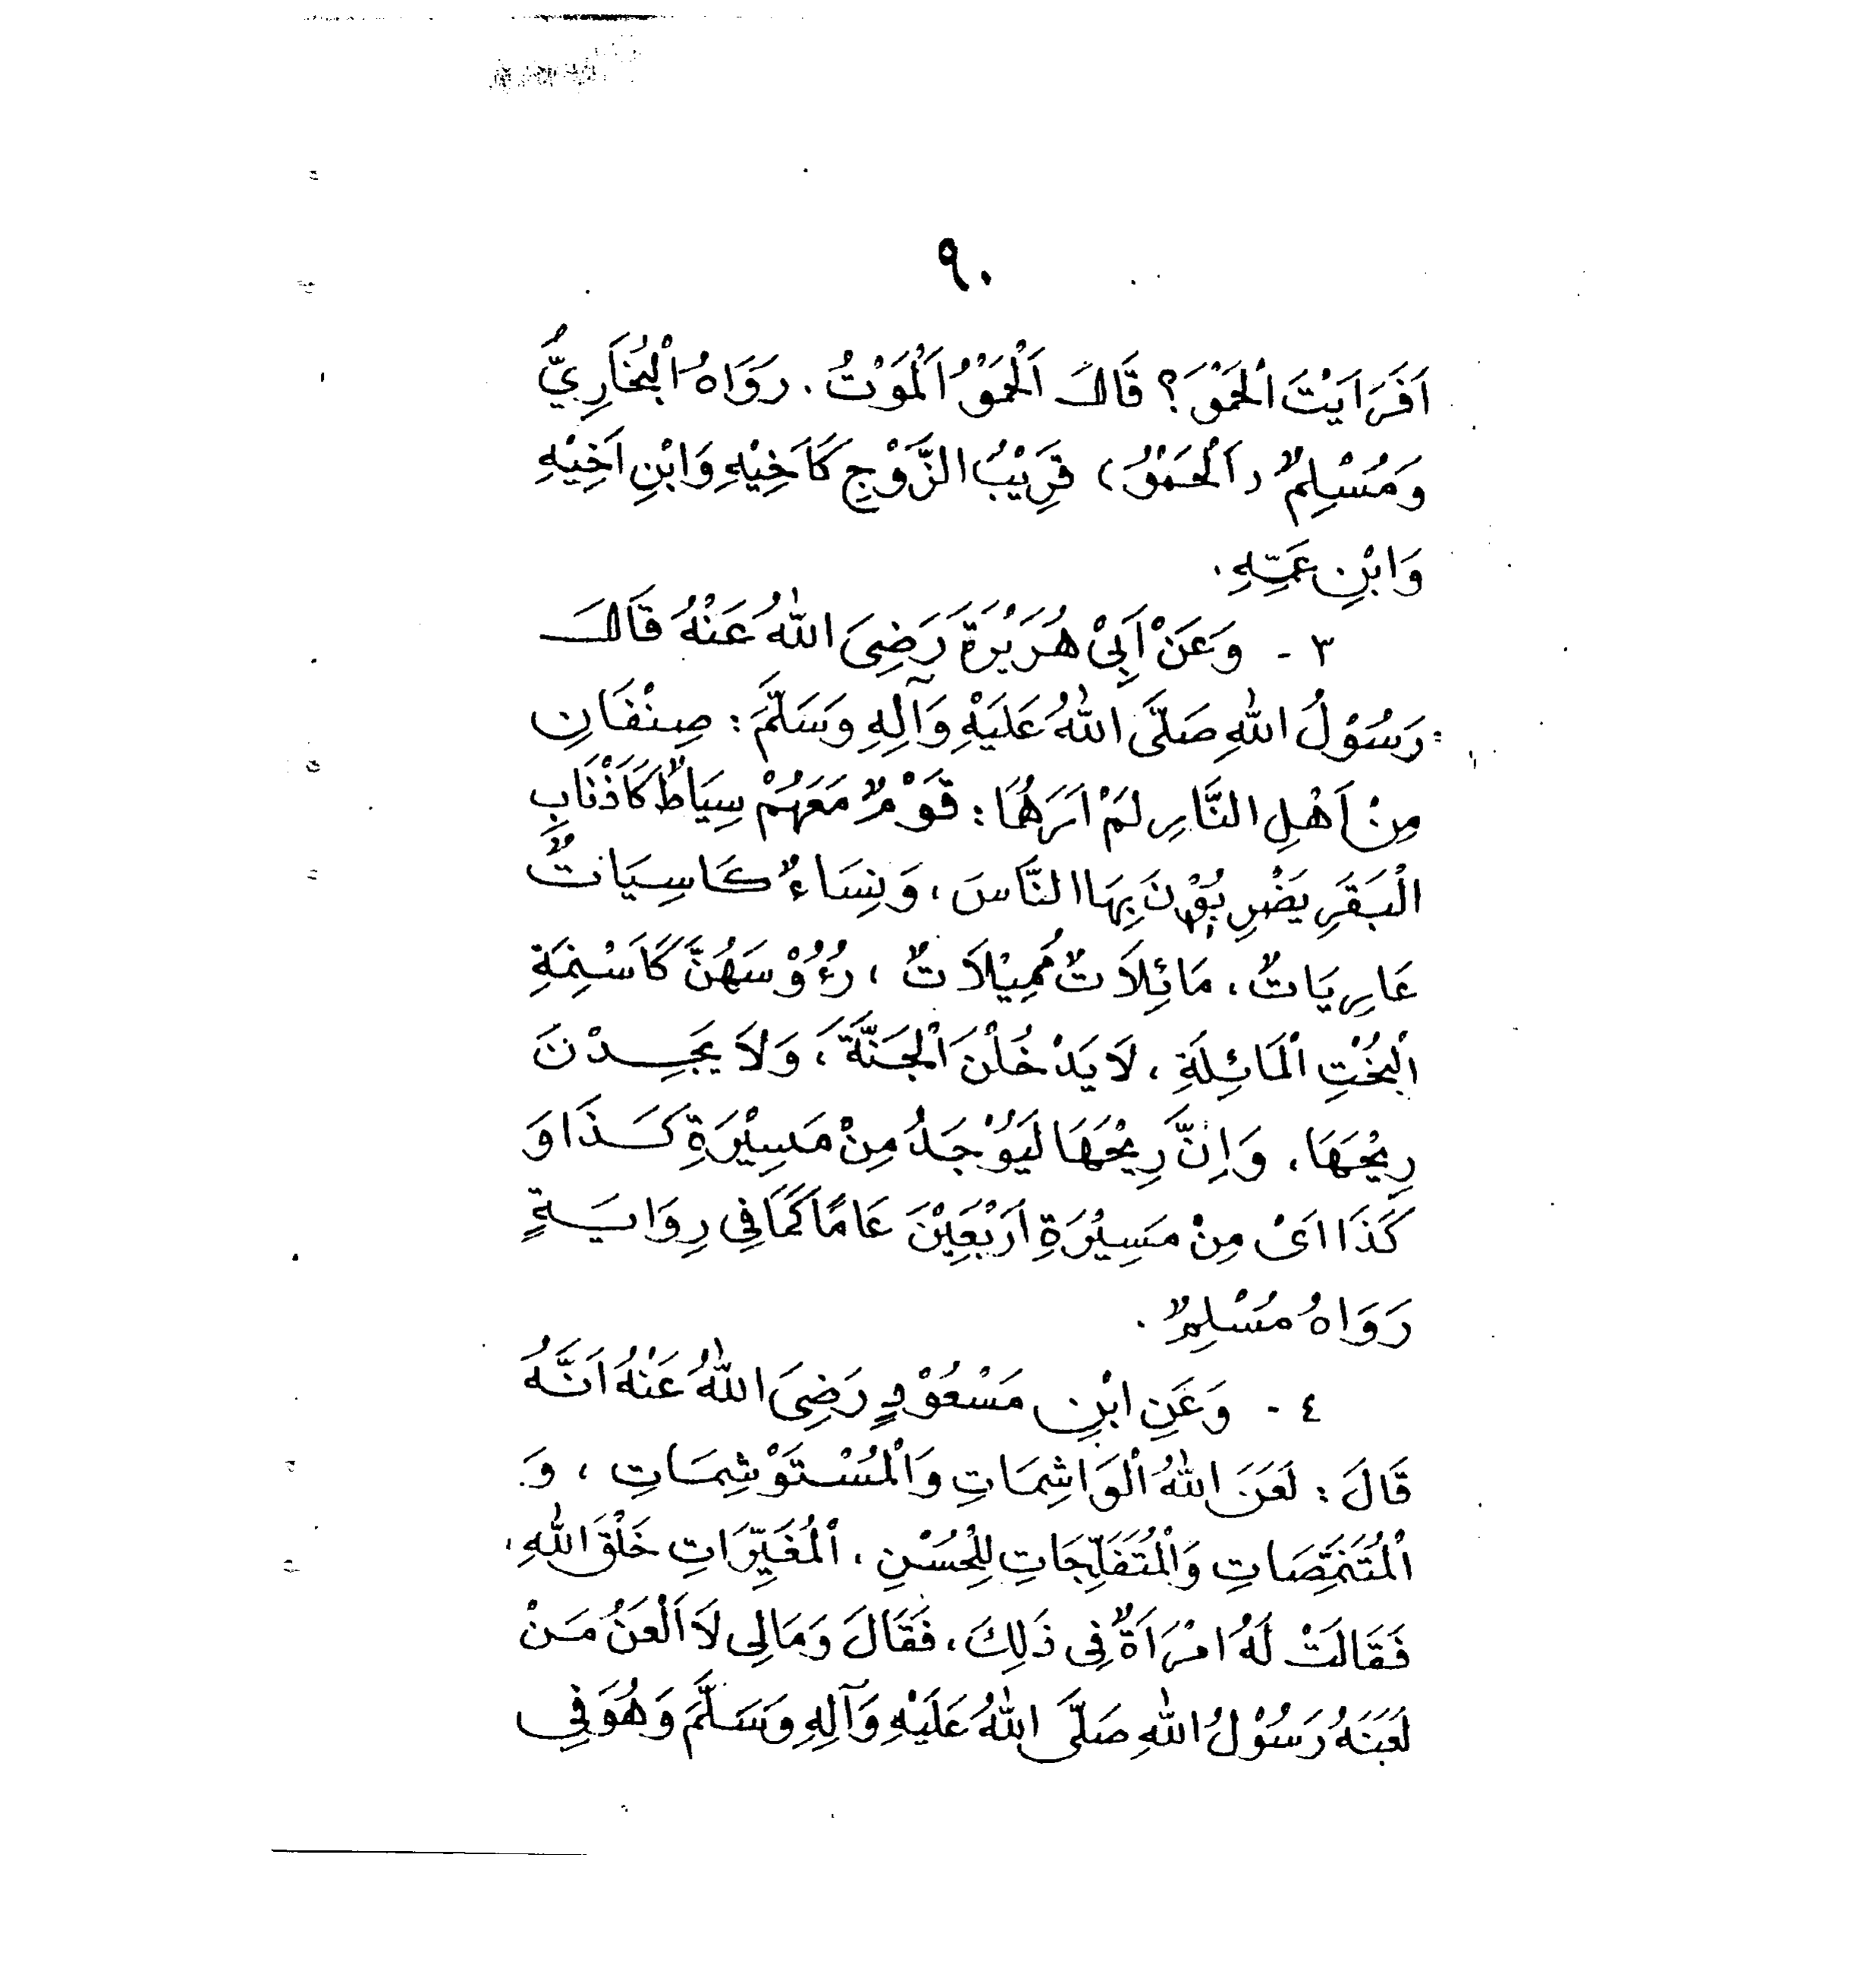 ٩٠
اَفَرَاَيْتَ اْلحَمْوَ؟ قَالَ اَلْحَمْوُ اَلْمَوْتُ. رَوَاهُ اْلبُخَارِيُّ
وَمُسْلِمٌ (اَلْحَمْوُ) قَرِيْبُ الزَّوْجِ كَاَخِيْهِ وَابْنِ اَخِيْهِ
وَابْنِ عَمِّهِ.
٣ - وَعَنْ اَبِىْ هُرَيْرَةَ رَضِىَ اللهُ عَنْهُ قَالَ
رَسُوْلُ اللهِ صَلَّى اللهُ عَلَيْهِ وَآلِهِ وَسَلَّمَ: صِنْفَانِ
مِنْ اَهْلِ النَّارِ لَمْ اَرَهُمَا: قَوْمٌ مَعَهُمْ سِيَاطٌ كَاَذْنَابِ
الْبَقَرِ يَضْرِبُوْنَ بِهَا النَّاسَ، وَنِسَاءٌ كَاسِيَاتٌ
عَارِيَاتٌ، مَائِلَاتٌ مُمِيْلَاتٌ، رُءُوْسَهُنَّ كَاَسْنِمَةِ
اْلبُخْتِ اْلمَائِلَةِ، لَا يَدْخُلْنَ اْلجَنَّةَ، وَلَا يَجِدْنَ
رِيْحَهَا، وَاِنَّ رِيْحَهَا لَيُوْجَدُ مِنْ مَسِيْرَةِ كَذَا وَ
كَذَا اَىْ مِنْ مَسِيْرَةِ اَرْبَعِيْنَ عَامًا كَمَا فِى رِوَايَةٍ
رَوَاهُ مُسْلِمٌ.
٤ - وَعَنِ ابْنِ مَسْعُوْدٍ رَضِىَ اللهُ عَنْهُ اَنَّهُ
قَالَ: لَعَنَ اللهُ اْلوَاشِمَاتِ وَاْلمُسْتَوْشِمَاتِ، وَ
اْلمُتَنَمِّصَاتِ وَاْلمُتَفَلِّجَاتِ لِلْحُسْنِ، اْلمُغَيِّرَاتِ خَلْقَ اللهِ،
فَقَالَتْ لَهُ امْرَاَةٌ فِى ذَلِكَ، فَقَالَ وَمَالِى لَا اَلْعَنُ مَنْ
لَعَنَهُ رَسُوْلُ اللهِ صَلَّى اللهُ عَلَيْهِ وَآلِهِ وَسَلَّمَ وَهُوَ فِى